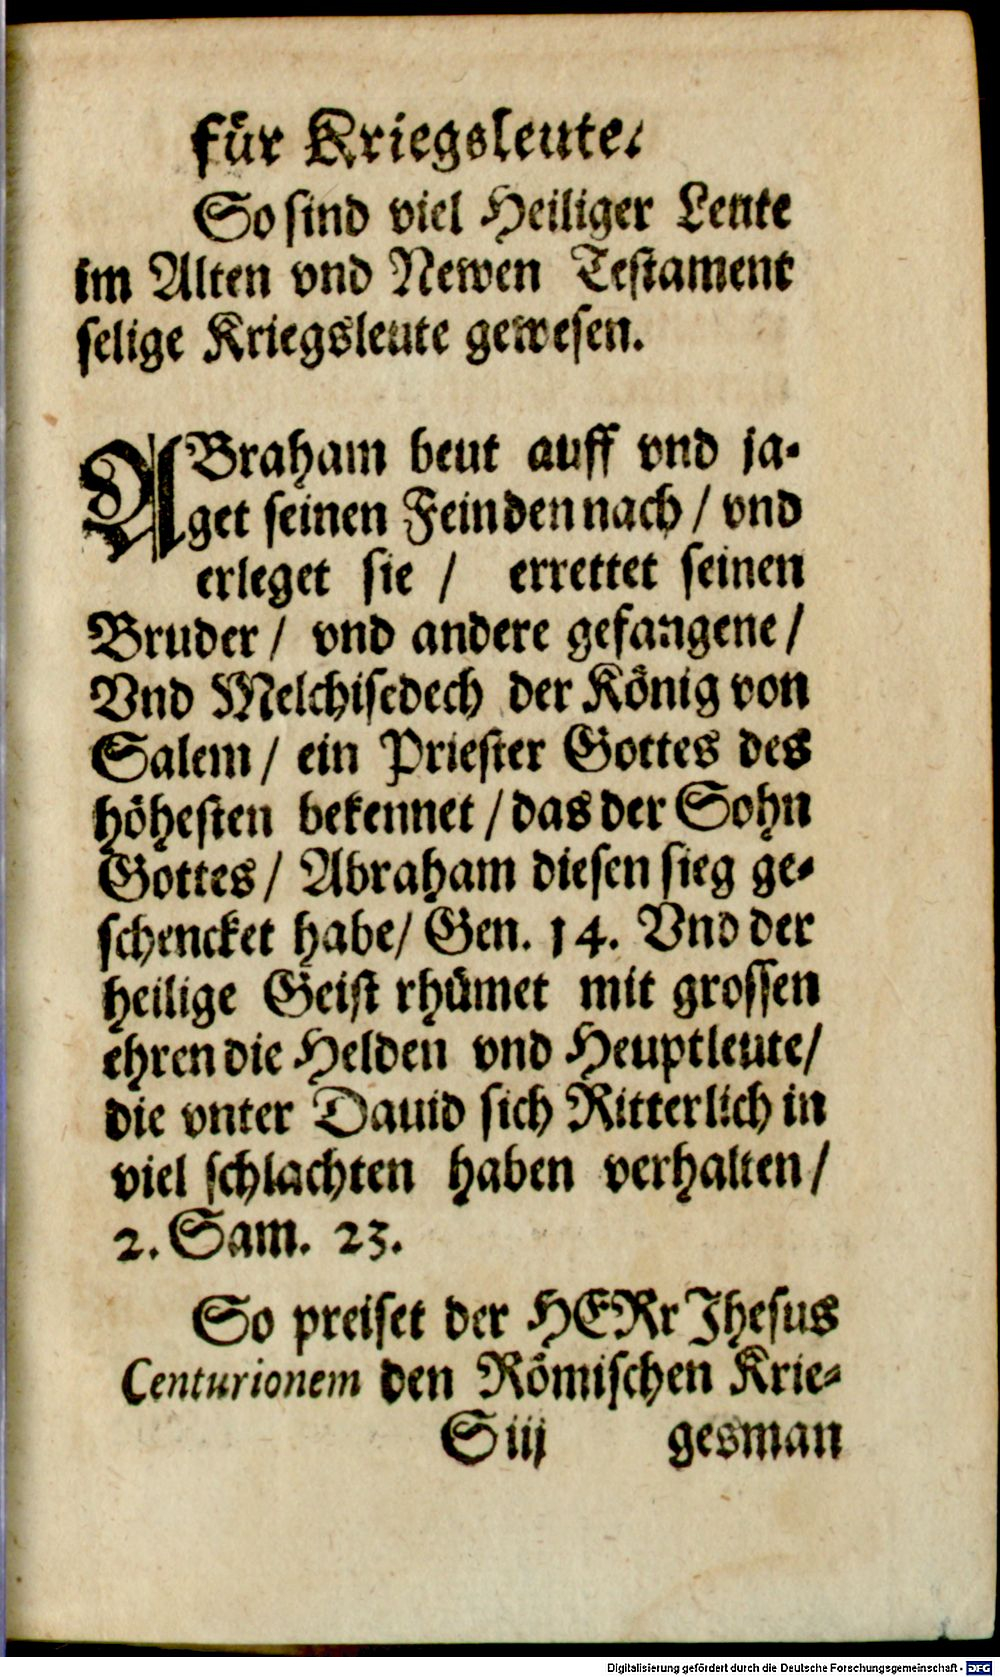 für Kriegsleute.
So sind viel Heiliger Leute
im Alten vnd Newen Testament
selige Kriegsleute gewesen.
ABraham beut auff vnd ja-
get seinen Feinden nach / vnd
erleget sie / errettet seinen
Bruder / vnd andere gefangene /
Vnd Melchisedech der König von
Salem / ein Priester Gottes des
höhesten bekennet / das der Sohn
Gottes / Abraham diesen sieg ge-
schencket habe / Gen. 14. Vnd der
heilige Geist rhümet mit grossen
ehren die Helden vnd Heuptleute /
die vnter Dauid sich Ritterlich in
viel schlachten haben verhalten /
2. Sam. 23.
So preiset der HERr Jhesus
Centurionem den Römischen Krie-
S iij gesman
Digitalisierung gefördert durch die Deutsche Forschungsgemeinschaft - DFG